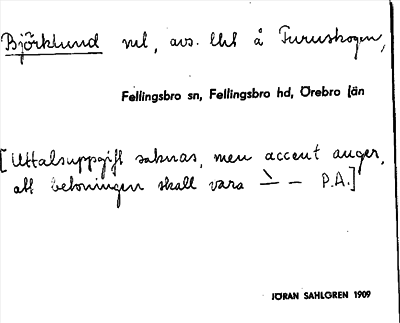 Björklund vel, avs. lht å Furuskogen,
Fellingsbro sn, Fellingsbro hd, Örebro län
[Uttalsuppgift saknas, men accent anger,
att betoningen skall vara ˋ– – P.A.]
JÖRAN SAHLGREN 1909